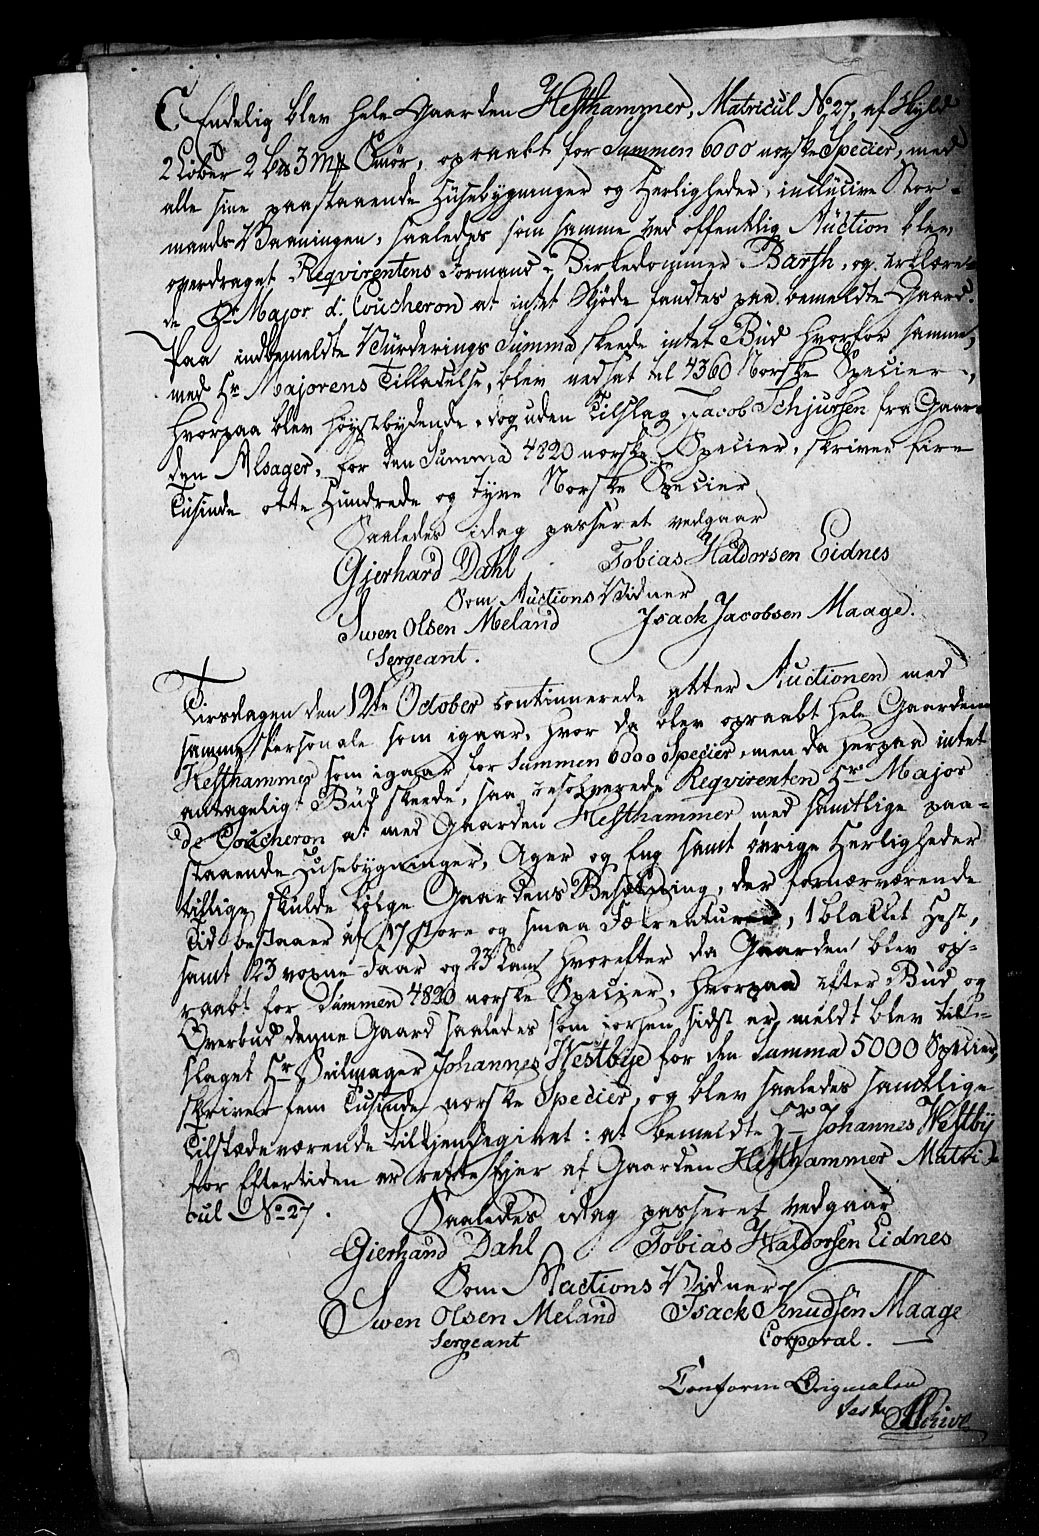 Endelig blev hele Gaarden Hesthammer, Matricul No 27, af Skyld
2 Løber 2 bs 3 Mk Smør, opraabt for Summen 6000 norske Specier, med
alle sine paastaaende Huusebygninger og Herligheder, inclusive Stor-
mands Vaaningen, saaledes som samme ved offentlig Auction blev
overdraget Reqvirentens Formand Birkedommer Barth, og erklære-
de Hr Major d: Coucheron at intet Skjøde fandtes paa bemeldte Gaard.
Paa indbemeldte Vurderings Summa skeede intet Bud hvorfor samme,
med Hr Majorens Tilladelse, blev nedsat til 4360 Norske Specier,
hvorpaa blev høystbydende, dog uden Tilslag, Jacob Schjursen fra Gaar-
den Alsager, for den Summa 4820 norske Specier, skriver fire
Tusinde otte Hundrede og Tyve Norske Specier
Saaledes idag passeret vedgaar
Gjerhard Dahl Tobias Haldorsen Eidnes
Som Auctions Vidner
Swen Olsen Meland Isack Jacobsen Maage.
Sergeant.
Tirsdagen den 12te October continuerede atter Auctionen med
samme Personale som igaar, hvor da blev opraabt hele Gaarden
Hesthammer som igaar for Summen 6000 Specier, men da herpaa intet
antageligt Bud skeede, saa resolverede Reqvirenten Hr Major
de Coucheron at med Gaarden Hesthammer med samtlige paa-
staaende Huusebygninger, Ager og Eng samt øvrige Herligheder
tillige skulde følge Gaardens Besætning, der fornærværende
Tid bestaaer af 17 store og smaa Fækreaturer, 1 blakket Hest,
samt 23 voxne Faar og 23 Lam, hvorefter da Gaarden blev op-
raabt for Summen 4820 norske Specier, hvorpaa efter Bud og
Overbud denne Gaard saaledes som forhen sidst er meldt blev til-
slaget Hr Seilmager Johannes Westbye for den Summa 5000 Specier
skriver fem Tusinde norske Specier, og blev saaledes samtlige
Tilstædeværende tilkjendegivet: at bemeldte Hr Johannes Westby
for Eftertiden er rette Ejer af Gaarden Hesthammer Matri-
cul No 27.
Saaledes idag passeret vedgaar
Gierhand Dahl Tobias Haldorsen Eidnes
Som Auctions Vidner
Swen Olsen Meland Isack Knudsen Maage
Sergeant Corporal.
Conform Originalen
teste